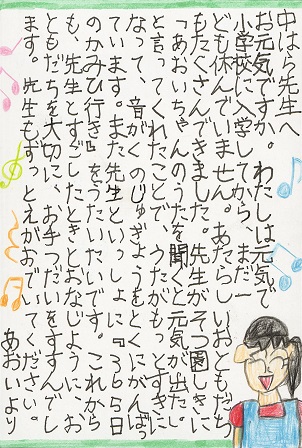 中はら先生へ
お元気ですか。わたしは元気で
小学校に入学してから、まだ一
ども休んでいません。あたらしいおともだち
もたくさんできました。先生がそつ園しきに
「あおいちゃんのうたを聞くと元気が出た。」
と言ってくれたことで、うたがもっとすきに
なって、音がくのじゅぎょうをとくにがんばっ
ています。また先生といっしょに『365日
のかみひ行き』をうたいたいです。これから
も、先生とすごしたときとおなじように、お
ともだちを大切に、お手つだいをすすんでし
ます。先生もずっとえがおでいてください。
あおいより